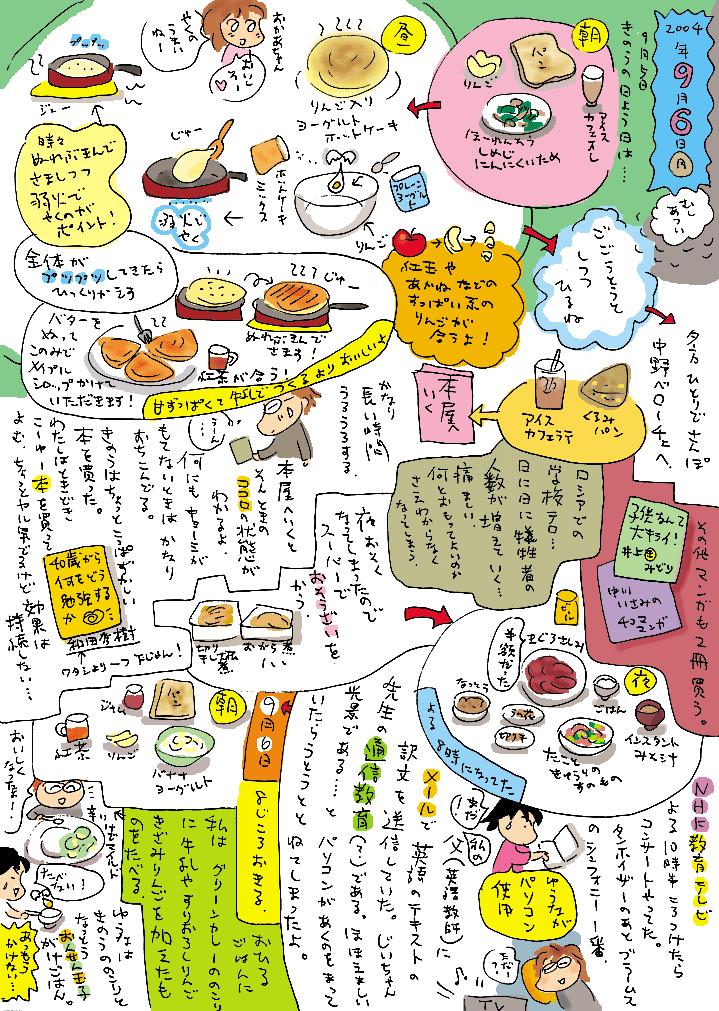 2004年9月6日(月)
9月5日
きのうの日よう日は…
朝
りんご
パン
アイス
カフェオレ
ほーれんそう
しめじ
にんにくいため
昼
りんご入り
ヨーグルト
ホットケーキ
おかあちゃん
やくの
うまい
ねー
おいし
そー
プツプツ
ジュー
時々
ぬれぶきんで
さましつつ
弱火で
やくのが
ポイント!
じゅー
弱火で
やく
ホットケーキ
ミックス
プレーン
ヨーグルト
りんご
紅玉や
あかね などの
すっぱい系の
りんごが
合うよ!
全体が
プツプツしてきたら
ひっくりかえす
じゅー
ぬれぶきんで
さます!
バターを
ぬって
このみで
メイプル
シロップかけて
いただきます!
紅茶が合う!
甘ずっぱくて牛乳でつくるよりおいしいよ
むし
あつい
ごごうとうとと
しつつ
ひるね
夕方ひとりでさんぽ
中野ベローチェへ
くるみ
パン
アイス
カフェラテ
本屋
いく
かなり
長い時間
うろうろする。
うーん…
本屋へいくと
そんときの
ココロの状態が
わかるよ。
何にもキョーミが
もてないときは かなり
おちこんでる。
きのうはちょっとこっぱずかしい
本を買った。
わたしはときどき
こーゆー本を買って
よむ。ちょっとヤル気でるけど 効果は
持続しない…
40歳から
何をどう
勉強する
か
和田秀樹
ワタシより一つ下じゃん!
ロシアでの
学校テロ…
日に日に犠牲者の
人数が増えていく…
痛ましい
何とおもってよいのか
さえわからなく
なってしまう
その他 マンガも2冊買う。
子供なんて
大キライ!
井上きみどり
中川
いさみの
4コマ
マンガ
夜おそく
なってしまったので
スーパーで
おそうざいを
かう。
切り干し大根
煮
おから煮
夜
ビール
まぐろさしみ
半額だった
なっとう
ごはん
切りボシ
インスタント
みそ汁
たこと
きゅうりの
すのもの
よる
8時になってた
NHK教育テレビ
よる10時半ころつけたら
コンサートやってた。
タンホイザーのあとブラームス
のシンフォニー一番、
ゆうなが
パソコン
使用
まだ!
私の
父(英語教師)に
メールで英語のテキストの
訳文を送信していた。じいちゃん
先生の通信教育(?)である。ほほえましい
光景である…と パソコンがあくのをまって
いたらうとうとと ねてしまったよ。
TV
9月6日
8じころおきる。
朝
ジャム
パン
紅茶
りんご
バナナ
ヨーグルト
おひる
ごはんに
私は グリーンカレーののこり
に牛乳やすりおろしりんご
きざみりんごを加えたも
のをたべる。
おいしく
なったなー!
辛い
けどマイルド
たべない!
ゆうなは
きのうののこりと
なっとう
おんせん玉子
がけごはん。
あっもう
かけない…